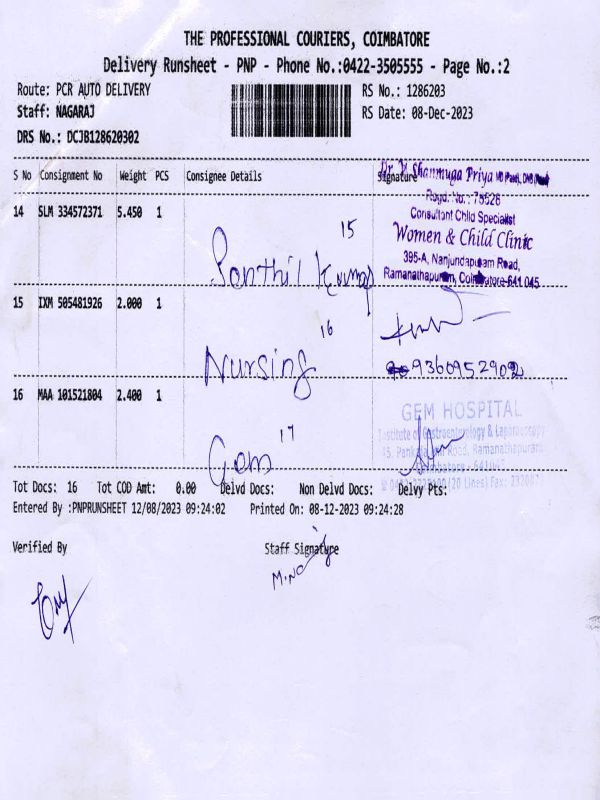 THE PROFESSIONAL COURIERS, COIMBATORE
Delivery Runsheet - PNP - Phone No.:0422-3505555 - Page No.:2
Route: PCR AUTO DELIVERY
RS No.: 1286203
Staff: NAGARAJ
RS Date: 08-Dec-2023
DRS No.: DCJB128620302
S No Consignment No Weight PCS Consignee Details Signature
Shanmuga Priya
Consultant Child Specialist
Women & Child Clinic
395-A, Nanjundapuram Road,
Ramanathapuram, Coimbatore-641 045
14 SLM 334572371 5.450 1
15
15 IXM 505481926 2.000 1
16
Nursing
9360952902
16 MAA 101521804 2.400 1
17
Gem
GEM HOSPITAL
Institute of Gastroenterology & Laparoscopy
Road, Ramanathapuram
Tot Docs: 16 Tot COD Amt: 0.00 Delvd Docs: Non Delvd Docs: Delvy Pts:
Entered By :PNPRUNSHEET 12/08/2023 09:24:02 Printed On: 08-12-2023 09:24:28
Verified By
Staff Signature